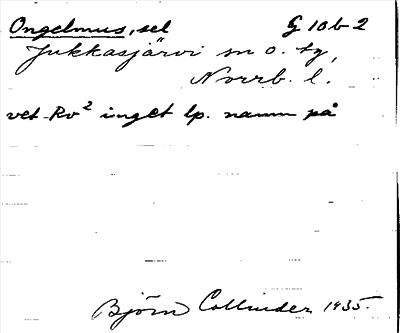 Ongelmus, sel G 10 b 2
Jukkasjärvi sn o. tg,
Norrb. l.
vet Rv² inget lp. namn på
Björn Collinder 1935.